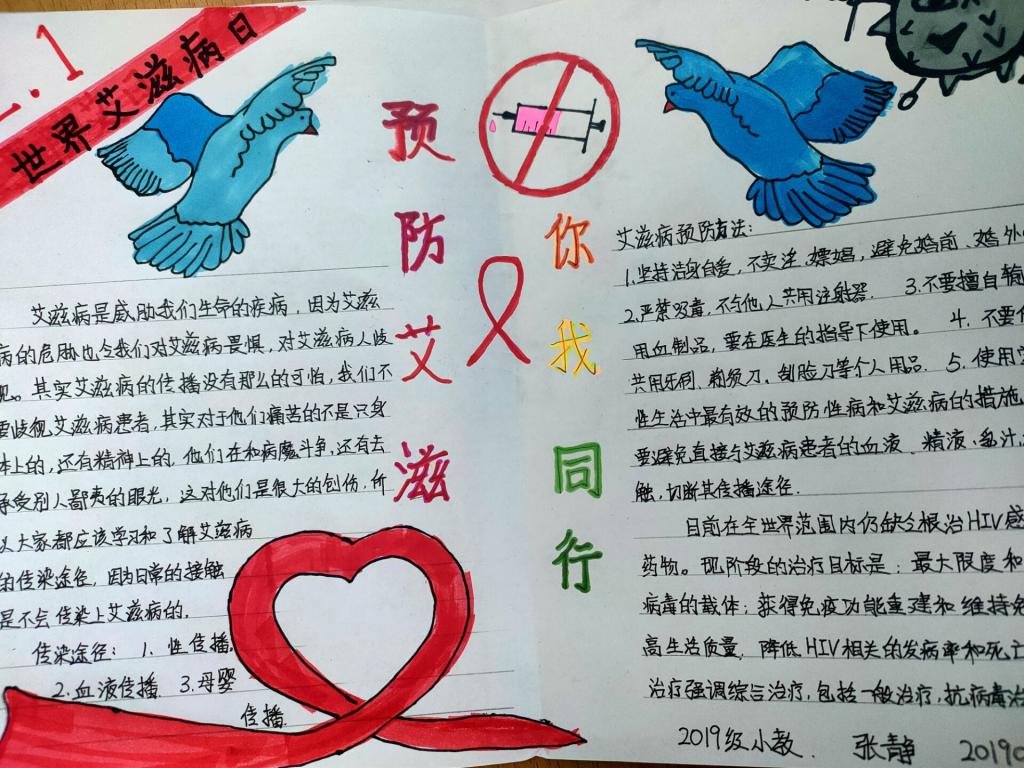 .1
世界艾滋病日
预
防
艾
滋
你
我
同
行
艾滋病是威胁我们生命的疾病,因为艾滋
病的危胁也令我们对艾滋病畏惧,对艾滋病人歧
视。其实艾滋病的传播没有那么的可怕,我们不
要歧视艾滋病患者,其实对于他们痛苦的不是只身
体上的,还有精神上的.他们在和病魔斗争,还有去
承受别人鄙夷的眼光,这对他们是很大的创伤.所
以大家都应该学习和了解艾滋病
的传染途径,因为日常的接触
是不会传染上艾滋病的.
传染途径:1、性传播.
2.血液传播 3.母婴
传播.
艾滋病预防方法:
1.坚持洁身自爱,不卖淫、嫖娼,避免婚前、婚外
2.严禁吸毒,不与他人共用注射器. 3.不要擅自输
用血制品,要在医生的指导下使用。 4.不要
共用牙刷、剃须刀、刮脸刀等个人用品. 5.使用
性生活中最有效的预防性病和艾滋病的措施
要避免直接与艾滋病患者的血液、精液、乳汁
触,切断其传播途径.
目前在全世界范围内仍缺乏根治HIV感
药物。现阶段的治疗目标是:最大限度和
病毒的载体;获得免疫功能重建和维持免
高生活质量,降低HIV相关的发病率和死亡
治疗强调综合治疗,包括一般治疗,抗病毒治
2019级小教. 张静 2019